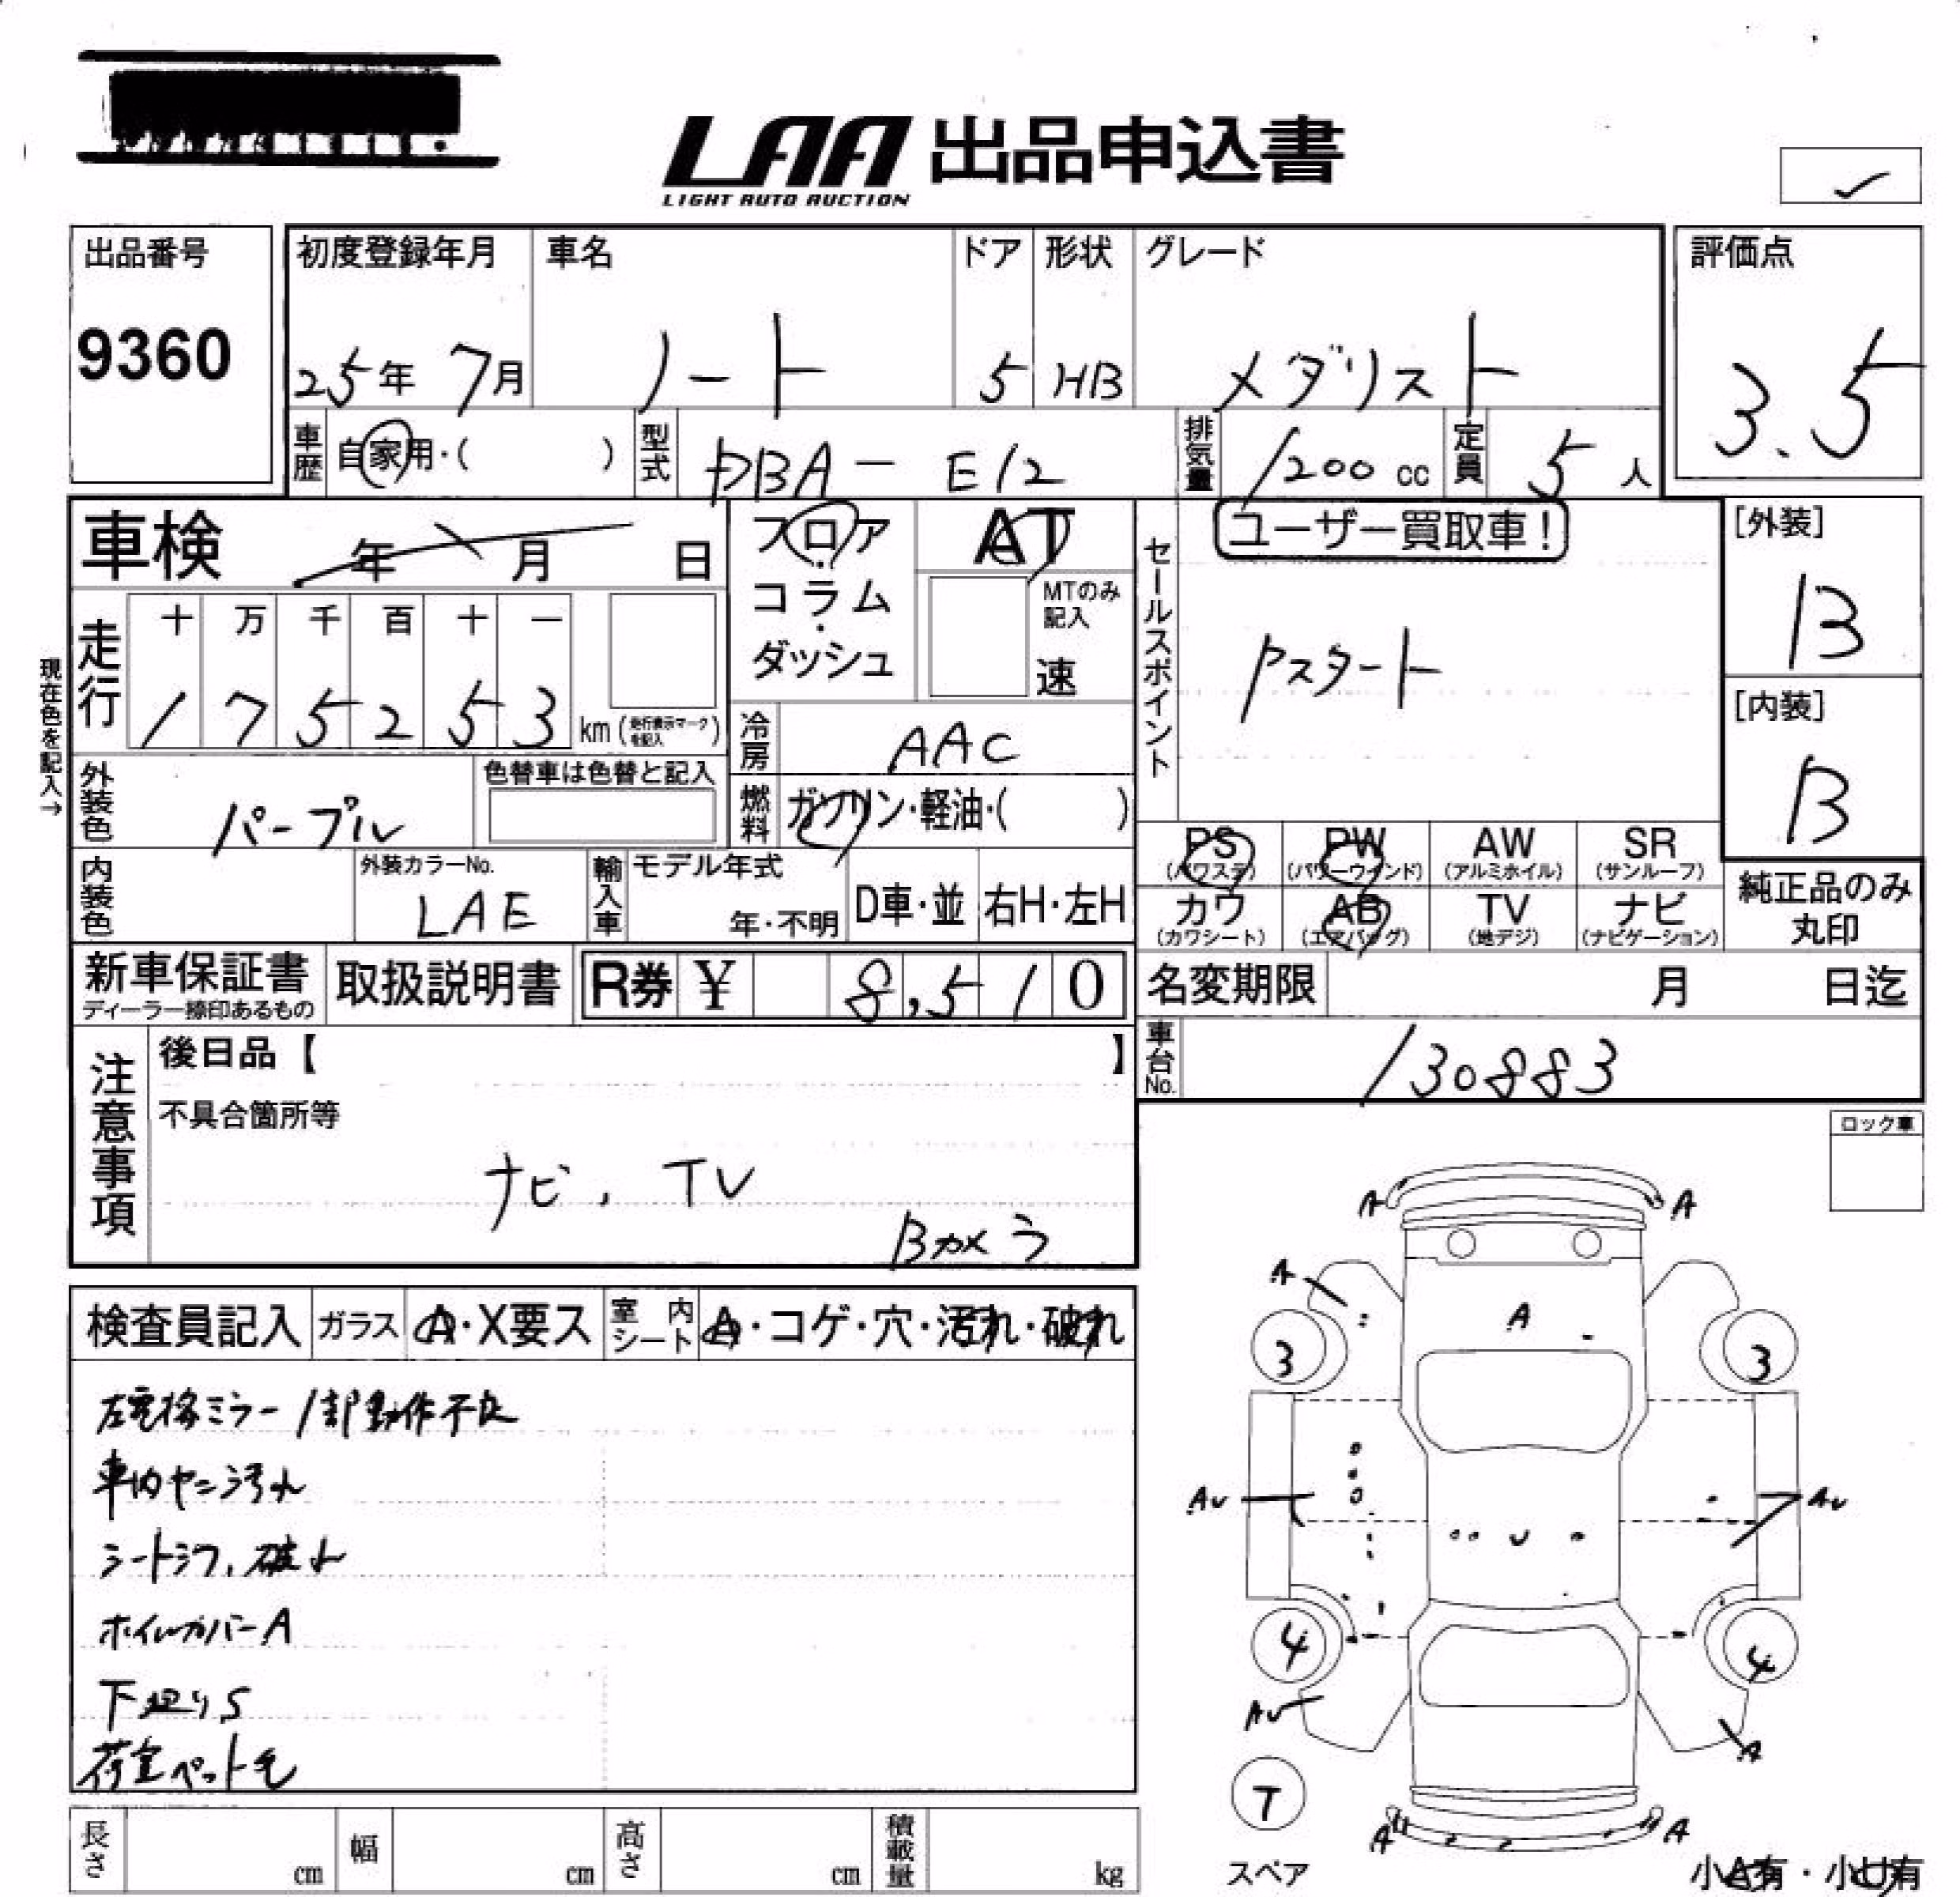 LAA 出品申込書
LIGHT AUTO AUCTION
✓
出品番号
9360
初度登録年月
25年 7月
車名
ノート
ドア
5
形状
HB
グレード
メダリスト
評価点
3.5
車歴 自家用・( )
型式 DBA-E12
排気量 1200 cc
定員 5 人
車検 年 月 日
フロア・コラム・ダッシュ
AT
MTのみ記入
速
セールスポイント
ユーザー買取車!
Pスタート
[外装]
B
[内装]
B
現在色を記入→
走行
十 万 千 百 十 一
1 7 5 2 5 3 km (走行表示マークを記入)
冷房 AAC
外装色 パープル
色替車は色替と記入
燃料 ガソリン・軽油・( )
PS (パワステ)
PW (パワーウインド)
AW (アルミホイル)
SR (サンルーフ)
カワ (カワシート)
AB (エアバッグ)
TV (地デジ)
ナビ (ナビゲーション)
純正品のみ丸印
内装色
外装カラーNo.
LAE
輸入車
モデル年式
年・不明
D車・並
右H・左H
新車保証書
ディーラー捺印あるもの
取扱説明書
R券 ¥ 8,510
名変期限 月 日迄
車台No. 130883
注意事項
後日品【 】
不具合箇所等
ナビ, TV
Bカメラ
ロック車
検査員記入
ガラス A・X要ス
室内シート A・コゲ・穴・汚れ・破れ
左電格ミラー1部動作不良
車内ヤニ汚れ
シートシワ, 破れ
ホイルカバーA
下廻りS
荷室ペット毛
A A
A
A
3 3
AU AU
4 4
AU
A
T
スペア
A A
小A有・小U有
長さ cm
幅 cm
高さ cm
積載量 kg